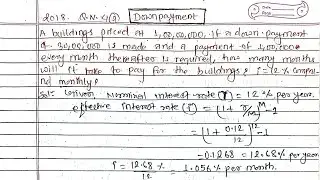 2018. Q.N. 4(3) Downpayment
Date
Page
A buildings priced at 1,00,00,000, if a down-payment
of 40,00,000 is made and a payment of 1,00,000
every month thereafter is required, how many months
will it take to pay for the buildings? r=12% compound
monthly?
Solⁿ: Given, Nominal interest rate (r) = 12% per year.
effective interest rate (i) = (1 + r/M)^M - 1
= (1 + 0.12/12)^12 - 1
= 0.1268 = 12.68% per year
i = 12.68%/12 = 1.056% per month.